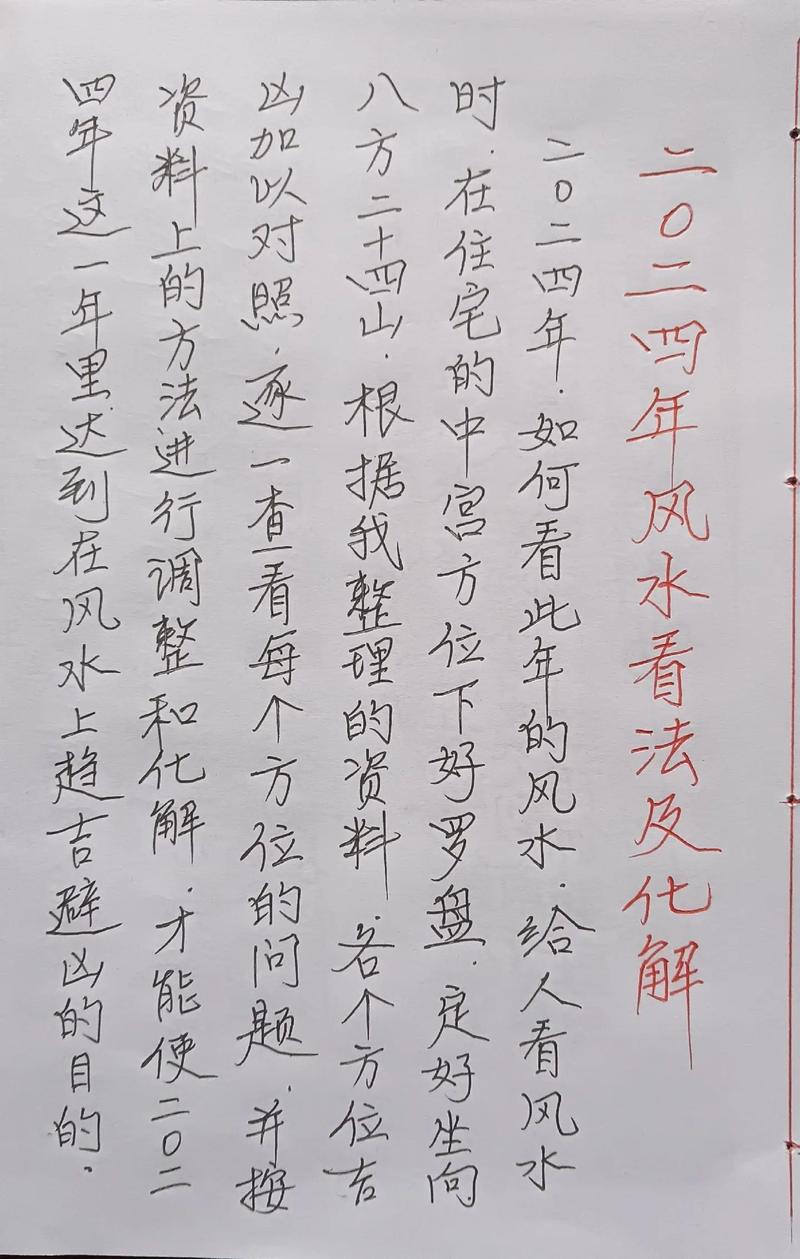 二〇二四年风水看法及化解
二〇二四年.如何看此年的风水.给人看风水
时.在住宅的中宫方位下好罗盘.定好坐向
八方二十四山.根据我整理的资料.各个方位吉
凶加以对照.逐一查看每个方位的问题.并按
资料上的方法进行调整和化解.才能使二〇二
四年这一年里达到在风水上趋吉避凶的目的.